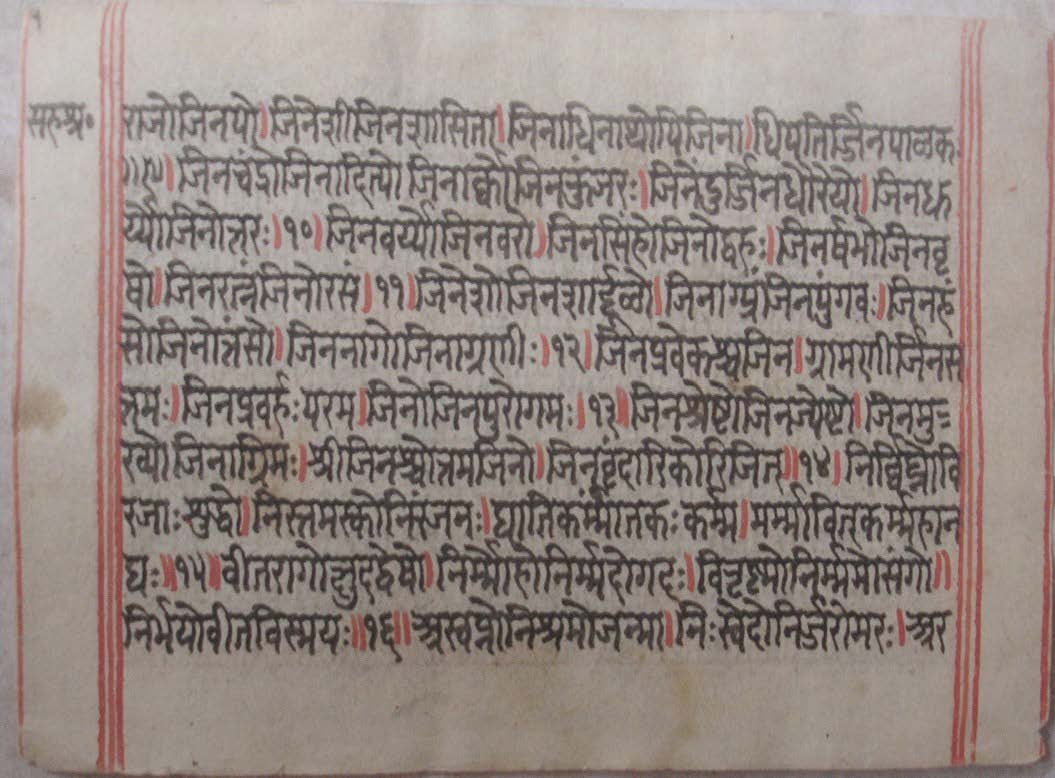 सह॰श्र॰
राजोजिनयो।जिनेशीजिनशासिता।जिनाधिनाथोपिजिना।धिपतिर्ज्जिनपालक
॥९॥।जिनचंद्रोजिनादित्यो।जिनार्क्कोजिनकुंजरः।जिनेंदुर्जिनधौरेयो।जिनधु
र्य्योजिनोत्तरः।१०।जिनवर्य्योजिनवरो।जिनसिंहोजिनोद्वहः।जिनर्षभोजिनवृ
षो।जिनरत्नंजिनोरसं।११।जिनेशोजिनशार्दूलो।जिनाग्य्रंजिनपुंगवः।जिनहं
सोजिनोत्तंसो।जिननागोजिनाग्रणीः।१२।जिनप्रवेकश्चजिन।ग्रामणीर्जिनस
त्तमः।जिनप्रवर्हःपरम।जिनोजिनपुरोगमः।१३॥जिनश्रेष्टोजिनज्येष्टो।जिनमु
ख्योजिनाग्रिमः।श्रीजिनश्चोत्तमजिनो।जिनवृंदारिकोरिजित्॥१४।निर्विघ्नोवि
रजाःशुद्धो।निस्तमस्कोनिरंजनः।घातिकर्म्मांतकःकर्म्म।मर्म्मावित्कर्म्महान
घः॥१५॥वीतरागोक्षुदद्वेषो।निर्म्मोहोनिर्म्मदोगदः।वितृष्णोनिर्म्ममोसंगो॥
निर्भयोवीतविस्मयः॥१६॥अस्वप्नोनिश्रमोजन्मा।निःस्वेदोनिर्ज्जरोमरः।अर